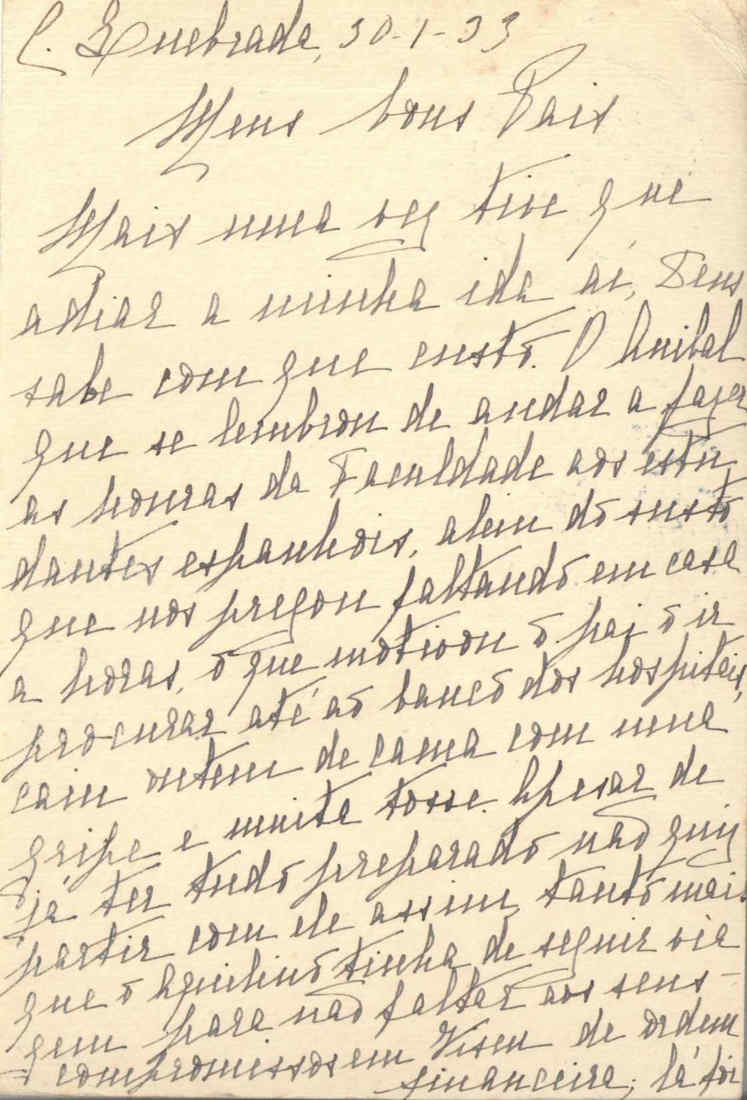 C. Quebrada, 30-1-33
Meus bons Pais
Mais uma vez tive que
adiar a minha ida aí, Deus
sabe com que custo. O Anibal
que se lembrou de andar a fazer
as honras da Faculdade aos estu
dantes espanhois, alem do susto
que nos pregou faltando em casa
a horas, o que motivou o pai o ir
procurar até ao banco dos hospitais,
caiu ontem de cama com uma
gripe e muita tosse. Apesar de
já ter tudo preparado não quiz
partir com ele assim, tanto mais
que o Aquilino tinha de seguir via
gem para não faltar aos seus -
compromissos em Viseu de ordem
financeira; lá foi